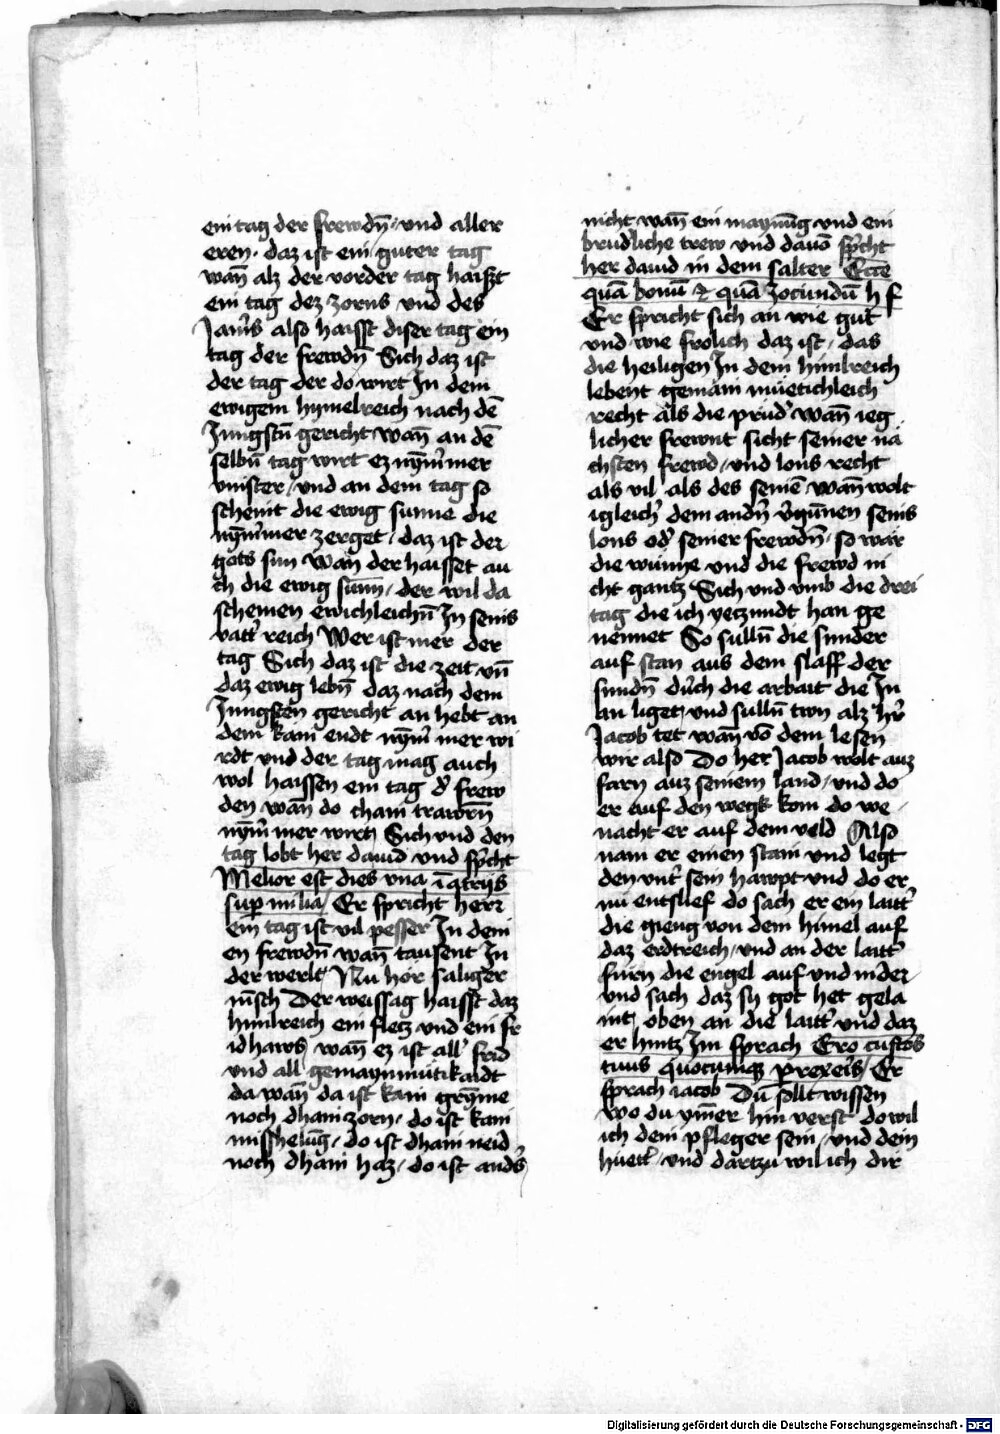 ein tag der frewdn̄ / vnd aller
eren · daz ist ein guter tag
wan̄ alz der vorder tag haiszt
ein tag dez zorns vnd des
Jam̄s also haisst diser tag ein
tag der frewdn̄ Sich daz ist
der tag der do wirt In dem
ewigem hymelreich nach dē
Jungstn̄ gericht wan̄ an dē
selbn̄ tag wirt ez nȳm̄mer
vinster / vnd an dem tag so
scheint die ewig sunne die
nȳm̄mer zerget / daz ist der
gots sun wan̄ der haisset au
ch die ewig sūnn / der wil da
scheinen ewichleichn̄ In seins
vatt̄ reich Wer ist mer der
tag Sich daz ist die zeit vn̄
daz ewig lebn̄ daz nach dem
Jungsten gericht an hebt an
dem kain endt nȳm̄ mer wi
rdt vnd der tag mag auch
wol haissen ein tag d̄ frew
den wan̄ do chain trawrn̄
nȳm̄ mer wirt Sich vnd den
tag lobt her dauid vnd sp̄cht
Melior est dies vna ī atrijs
sup̄ milia / Er spricht herr
ein tag ist vil pesser In dein
en frewdn̄ wan̄ tausent In
der werlt / Nu hör saliger
mēsch Der weissag haisst daz
himlreich ein fletz vnd ein fr
idhaws wan̄ ez ist all̄ frid
vnd all gemaynmutikaidt
da wan̄ da ist kain grȳme
noch dhain zorn · do ist kain
misshelūg / do ist dhain neid
noch dhain haz / do ist and̄s
nicht wan̄ ein maynūg vnd ein
brudliche trew vnd dauō sp̄cht
her dauid in dem salter Ecce
quā bonū ⁊ quā Jocundū h f
Er spricht sich an wie gut
vnd wie frolich daz ist / das
die heiligen In dem himlreich
lebent gemain müetichleich
recht als die prüd̄ wan̄ ieg
licher frewnt sicht seiner nä
chsten frewd / vnd lons recht
als vil als des seinē wan̄ wolt
igleich̄ dem andn̄ v̄gūnnen seins
lons od̄ seiner frewdn̄ / so wär
die wunne vnd die frewd ni
cht gantz Sich vnd vmb die drei
tag die ich yetzundt han ge
nennet So sulln̄ die sunder
auf stan aus dem slaff der
sundn̄ dūch die arbait die In
an liget / vnd sulln̄ twn alz h̄r
Jacob tet wan̄ vō dem lesen
wir also Do her Jacob wolt auz
farn auz seinem land / vnd do
er auf den wegk kom do we
nacht er auf dem veld Also
nam er einen stain vnd legt
den vnt̄ sein hawpt vnd do er
nu entslief do sach er ein laitt̄
die gieng von dem himel auf
daz erdtreich / vnd an der laitt̄
fürn die engel auf vnd nider
vnd sach daz sy got het gela
int / oben an die laitt̄ vnd daz
er hintz Im sprach Ero custos
tuus quocumq̄ prexeris / Er
sprach iacob Du sollt wissen
wo du ym̄er hin verst do wil
ich dein pfleger sein / vnd dein
hüett̄ / vnd dartzu wil ich dir
Digitalisierung gefördert durch die Deutsche Forschungsgemeinschaft - DFG